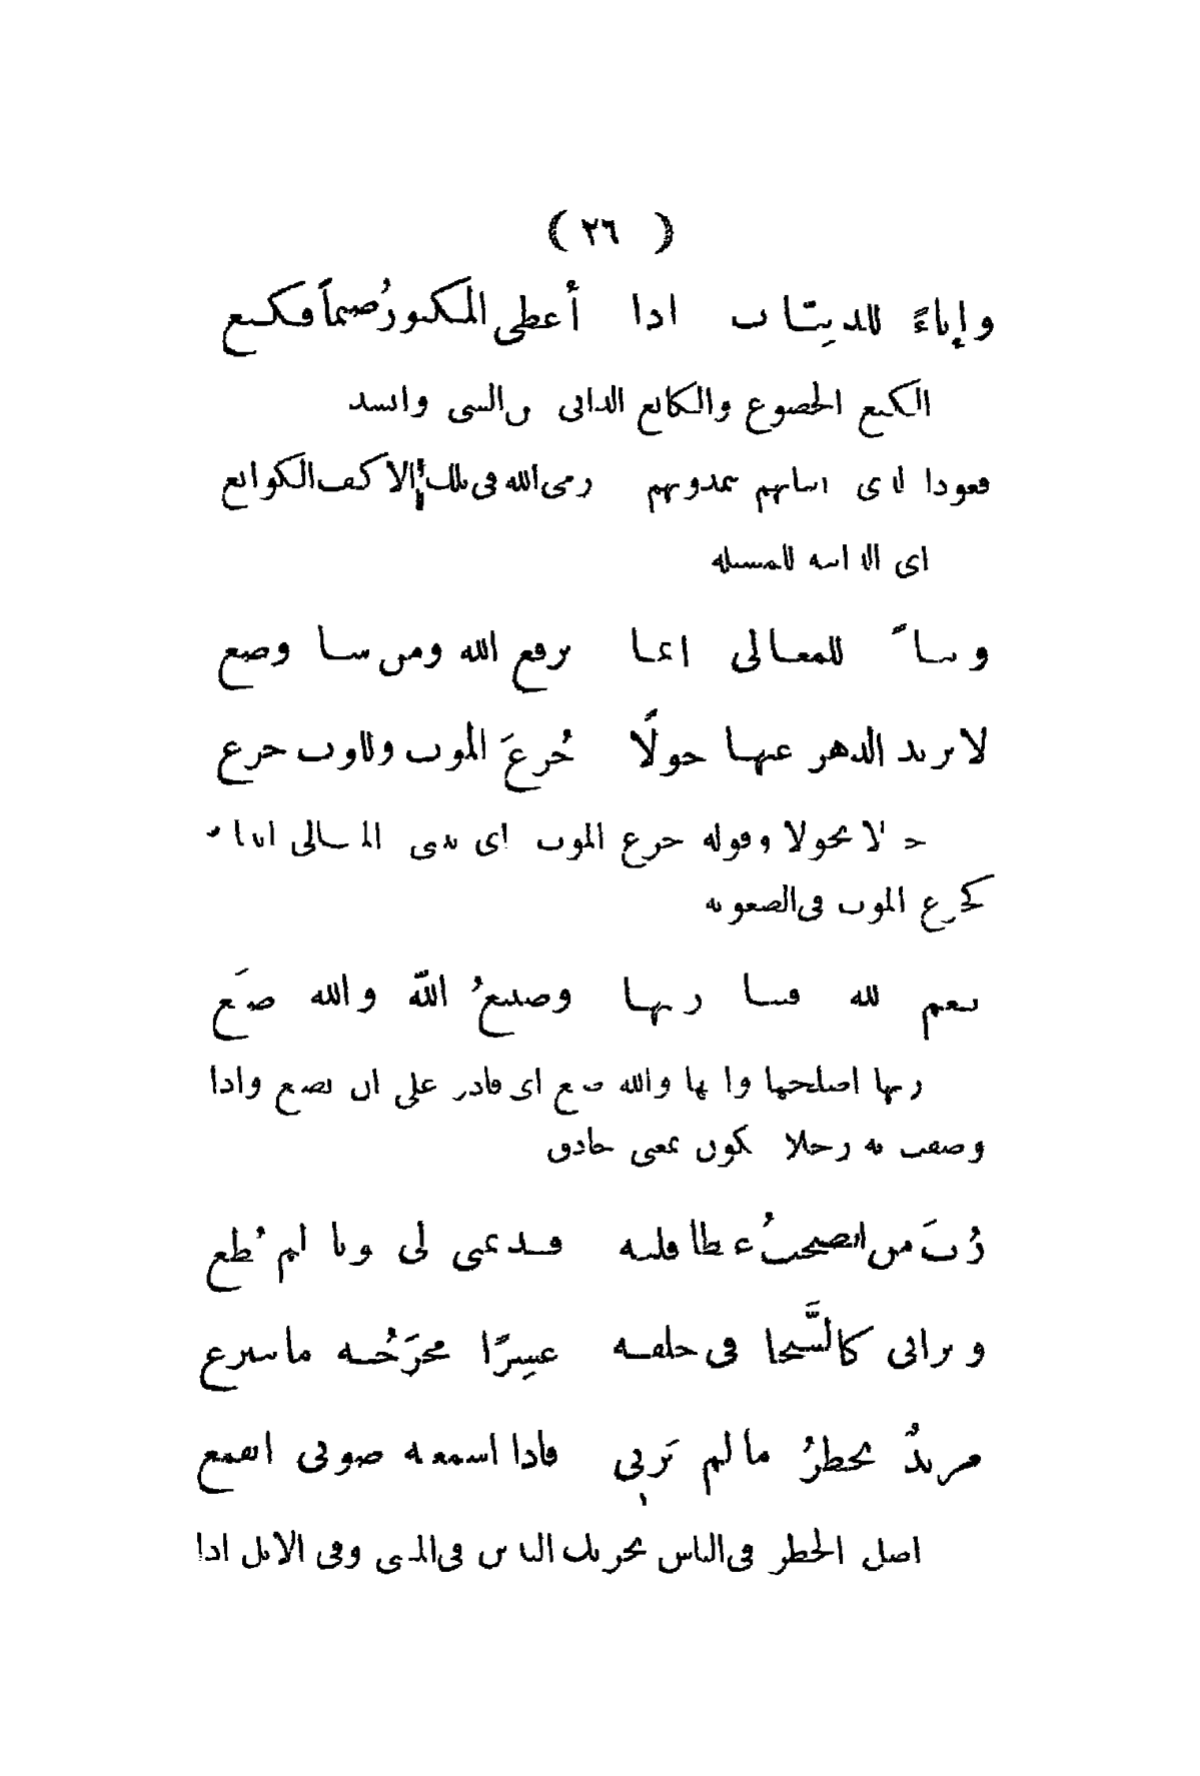 ( ٢٦ )
وإباءً للدنيّات اذا أعطى المكثورُ ضيماً فكنع
الكنع الخضوع والكانع الدانى من الشئ وانشد
قعودا لدى ابياتهم يثمدونهم رمى الله فى تلك الاكف الكوانع
اى الدانية للمسئلة
وبناءً للمعالى انما يرفع الله ومن شاء وضع
لا يريد الدهر عنها حولًا جُرعَ الموت وللموت جرع
حولا تحولا وقوله جرع الموت اى
كجرع الموت فى الصعوبة
نعم لله فينا ربها وصنيعُ اللّه والله صنَع
ربها اصلحها واتمها والله صنع اى قادر على ان يصنع واذا
وصفت به رجلا يكون بمعنى حاذق
رُبَ من انضجتُ غيظا قلبه قد تمنى لى موتا لم يُطع
ويرانى كالشَّجا فى حلقه عسِرًا مخرَجُه ما ينتزع
مزبدٌ يخطرُ ما لم يَرنِى فاذا اسمعته صوتى انقمع
اصل الخطر فى الناس تحريك الناس فى المشى وفى الابل اذا